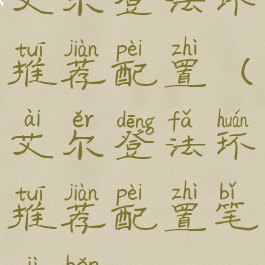 艾尔登法环
tuī jiàn pèi zhì
推荐配置（
ài ěr dēng fǎ huán
艾尔登法环
tuī jiàn pèi zhì bǐ
推荐配置笔
jì běn